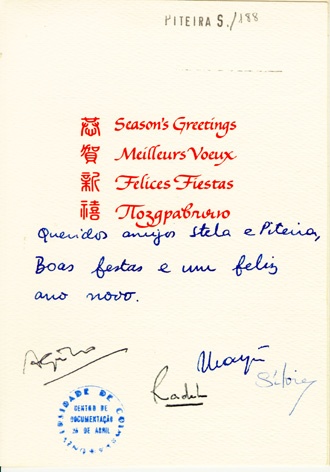 PITEIRA S./188
恭 Season's Greetings
賀 Meilleurs Voeux
新 Felices Fiestas
禧 Поздравляю
Queridos amigos Stela e Piteira,
Boas festas e um feliz
ano novo.
UNIVERSIDADE DE COIMBRA
CENTRO DE
DOCUMENTAÇÃO
25 DE ABRIL